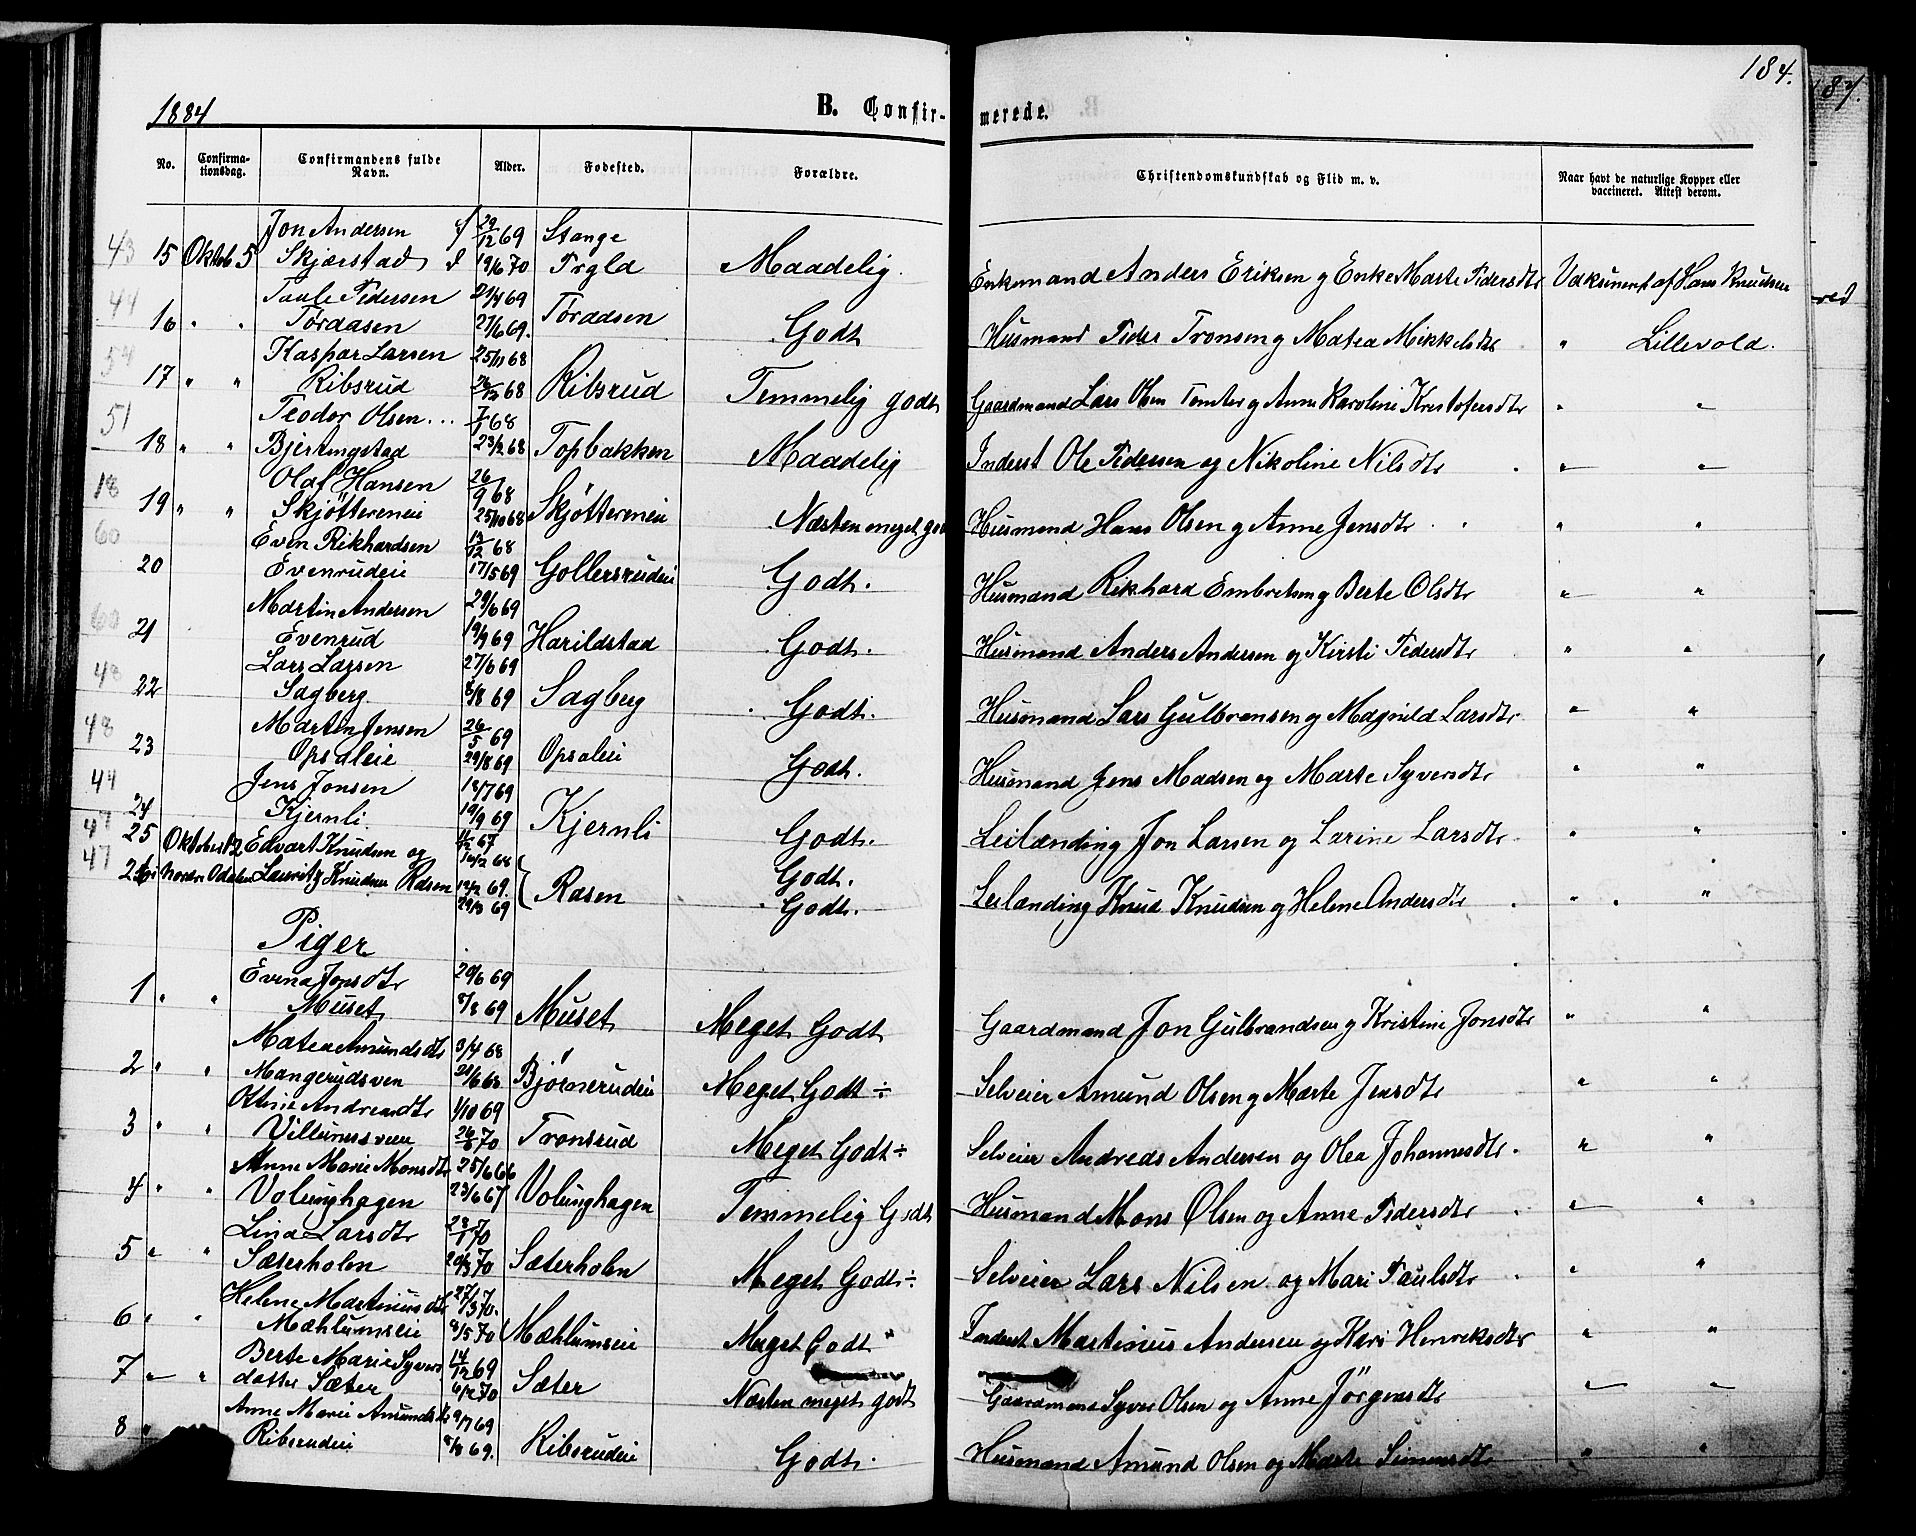 184.
187.
1884
B. Confirmerede.
No.
Confirmationsdag.
Confirmandens fulde Navn.
Alder.
Fødested.
Forældre.
Christendomskundskab og Flid m. v.
Naar havt de naturlige Kopper eller vaccineret. Attest derom.
43 15 Oktob 5 Jon Andersen Skjærstad f 29/12 69 d 19/6 70 Stange Maadelig. Enkemand Anders Eriksen og Enke Marte Pedersdtr Vaksineret af Hans Knudsen
44 16 " " Paule Pedersen Tøraasen 21/4 69 27/6 69. Toraasen Godt Husmand Peder Tronsen og Matea Mikkelsdtr " Lillevold.
54 17 " " Kaspar Larsen Ribsrud 25/11 68 26/12 68 Ribsrud Temmelig godt Gaardmand Lars Olsen Tomter og Anne Karoline Kristofersdtr " "
51 18 " " Teodor Olsen Bjerringstad 7/1 68 23/2 68 Topbakken Maadelig Inderst Ole Pedersen og Nikoline Nilsdtr " "
18 19 " " Olaf Hansen Skjøttereneie 26/9 68 25/10 68 Skjøttereneie Næsten meget godt Husmand Hans Olsen og Anne Jensdtr " "
60 20 Even Rikhardsen Evenrudeie 13/12 68 17/5 69 Gollersrudeie Godt. Husmand Rikhard Embretsen og Berte Olsdtr " "
60 21 Martin Andersen Evenrud 29/6 69 19/9 69 Harildstad Godt. Husmand Anders Andersen og Kirsti Pedersdtr " "
48 22 Lars Larsen Sagberg 27/6 69 8/8 69 Sagberg Godt. Husmand Lars Gulbransen og Magnild Larsdtr " "
48 23 Martin Jensen Opsaleie 26/5 69 29/8 69 Opsaleie Godt. Husmand Jens Madsen og Marte Syversdtr " "
44 24 Jens Jonsen Kjernli 18/7 69 19/9 69 Kjernli Godt. Leilænding Jon Larsen og Larine Larsdtr " "
47 25 Oktober 12 Edvart Knudsen og 67 68 Godt.
47 26 i Nordre Odalen Lauritz Knudsen Rasen 69. 69 Rasen Godt. Leilænding Knud Knudsen og Helene Andersdtr " "
Piger
1 " " Evina Jonsdtr Muset 20/6 69 8/8 69 Muset Meget Godt Gaardmand Jon Gulbrandsen og Kristine Jonsdtr " "
2 " " Matea Amundsdtr Mangerudsven 3/4 68 21/6 68 Bjørnerudeie Meget Godt ÷ Selveier Amund Olsen og Marte Jensdtr " "
3 " " Andreasdtr 1/10 69 70 Tronsrud Meget Godt ÷ Selveier Andreas Andersen og Olea Johannesdtr " "
4 " " Anne Marie Monsdtr Volunghagen 25/6 66 23/6 67 Volunghagen Temmelig Godt Husmand Mons Olsen og Anne Pedersdtr " "
5 " " Lina Larsdtr Sæterholen 28/1 70 20/3 70 Sæterholen Meget Godt ÷ Selveier Lars Nilsen og Mari Paulsdtr " "
6 " " Helene Martinusdtr Mæhlumseie 27/3 70. 8/5 70 Mæhlumseie Meget Godt " Inderst Martinus Andersen og Kari Henriksdtr " "
7 " " Berte Marie Syversdatter Sæter 14/12 69 6/2 70 Sæter Næsten meget godt Gaardmand Syver Olsen og Anne Jørgensdtr " "
8 " Anne Marie Amundsdtr Ribsrudeie 9/7 69 8/8 69. Ribsrudeie Godt. Husmand Amund Olsen og Marte Simensdtr " "